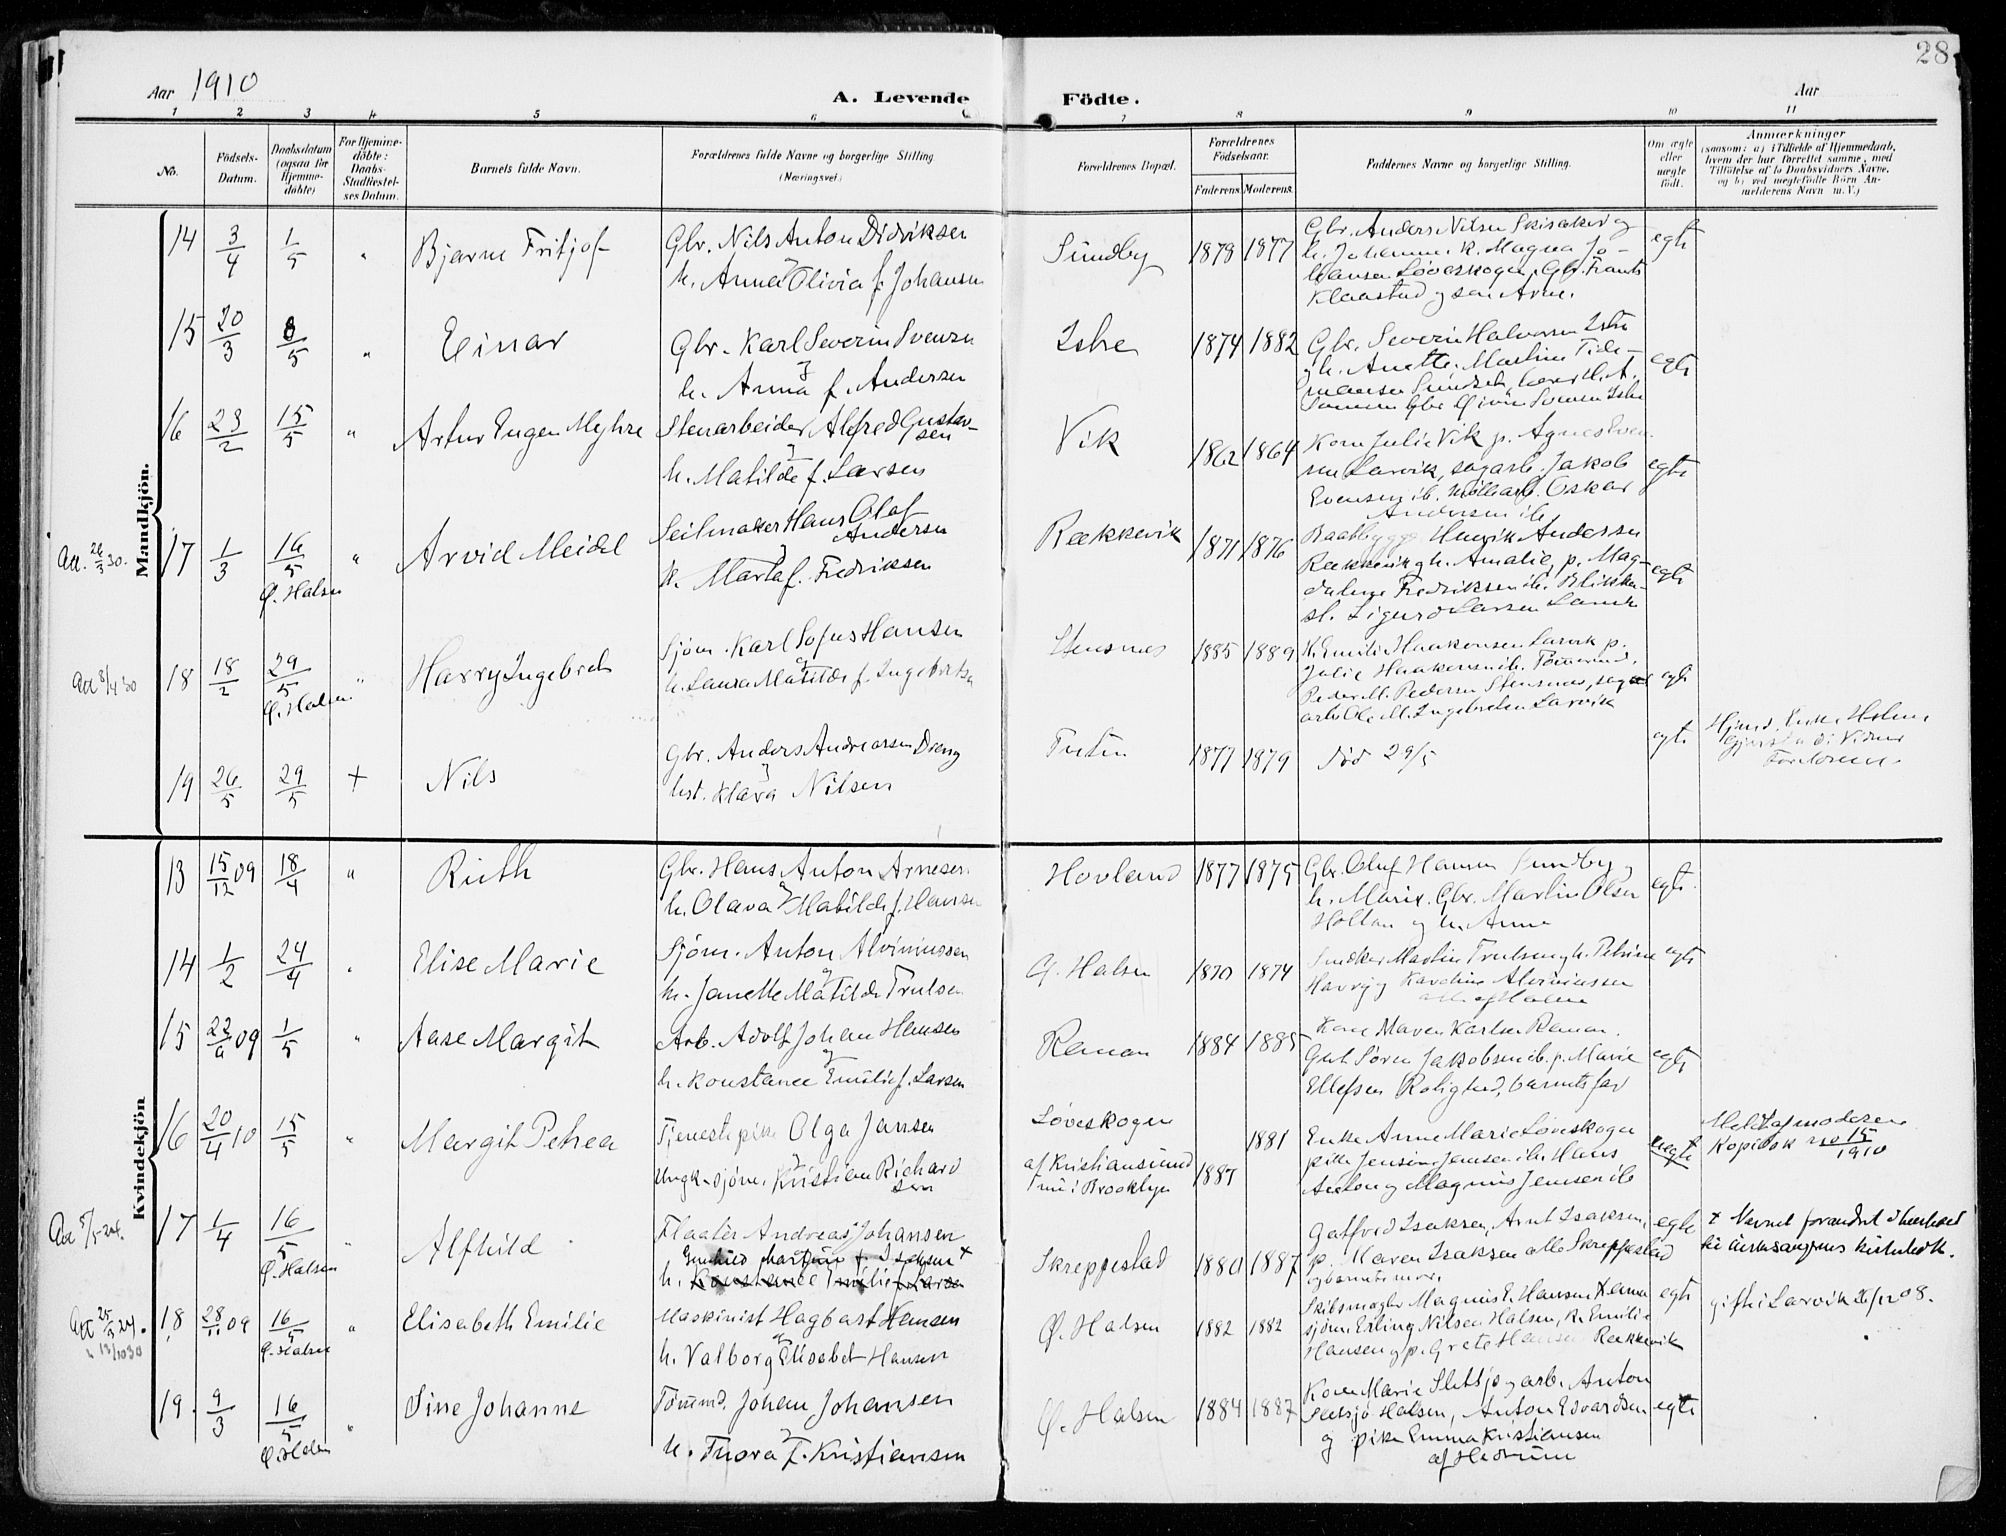 28
Aar 1910
A. Levende
Födte.
Aar
1 2 3 4 5 6 7 8 9 10 11
No.
Födsels-Datum.
Daabsdatum (ogsaa for Hjemme-döbte)
For Hjemme-döbte: Daabs-Stadfæstel-ses Datum.
Barnets fulde Navn.
Forældrenes fulde Navne og borgerlige Stilling (Næringsvei.)
Forældrenes Bopæl.
Forældrenes Födselsaar.
Faderens Moderens.
Faddernes Navne og borgerlige Stilling.
Om ægte eller uægte födt.
Anmærkninger
(saasom: a) i Tilfælde af Hjemmedaab, hvem der har forrettet samme, med Tilföielse af to Daabsvidners Navne, og b) ved uægtefödte Börn An-melderens Navn m. V.)
Mandkjön.
14 3/4 1/5 " Bjarne Fritjof
Gbr. Nils Anton Didriksen
og
h. Anna Olivia f. Johansen
Sundby 1878 1877
Gbr. Anders Nilsen Skisaker og
h. Johanne. k. Magna Jo-
hansen Løveskogen, Gbr. Frants
Klaastad og søn Arne.
egte
15 20/3 8/5 " Einar
Gbr. Karl Severin Svensen
og
h. Anna f. Andersen
Istre 1874 1882
Gbr. Severin Halvorsen Istre
og h. Anette. Martin Tide-
mansen Sundset,
Gbr Svensen Istre
egte
16 23/2 15/5 " Artur Eugen Myhre
Stenarbeider Alfred Gustav-
sen
og
h. Matilde f. Larsen
Vik 1862 1864
Kone Julie Vik p. Agnes Even-
sen Larvik, sagarb. Jakob
Evensen ib. Oskar
Andersen ib
egte
17 1/3 16/5 Ø. Halsen " Arvid Meidel
Seilmaker Hans Olaf
Andersen
og
h. Marta f. Fredriksen
Rekkevik 1871 1876
Baatbygger Henrik Andersen
Rekkevik og h. Amalie, p. Mag-
dalene Fredriksen ib. Blikken-
sl. Sigurd Larsen Larvik
egte
Att. 26/3 30.
18 18/2 29/5 Ø. Halsen " Harry Ingebret
Sjøm. Karl Sofus Hansen
og
h. Laura Matilde f. Ingebretsen
Stensnes 1885 1889
K. Emilie Haakonsen Larvik p.
Julie Haakonsen ib. Tømmermd.
Peder M. Pedersen Stensnes, sag
arb. Ole M. Ingebretsen Larvik
egte
Att 8/4 30
19 26/5 29/5 + Nils
Gbr. Anders Andreassen Dreng
og
hst. Klara Nilsen
1877 1879
død 29/5
egte
Kvindekjön
13 15/12 09 18/4 " Ruth
Gbr. Hans Anton Arnesen
og
h. Olava Matilde f. Hansen
Hovland 1877 1875
Gbr. Oluf Hansen Sundby og
h. Marie. Gbr. Martin Olsen
Holtan og h. Anna
egte
14 1/2 24/4 " Elise Marie
Sjøm. Anton Alviniussen
og
h. Janette Matilde Trulsen
Ø. Halsen 1870 1874
Snedker Martin Trulsen og h. Petrine
Harry og Karoline Alviniussen
alle af Halsen
egte
15 22/6 09 1/5 " Aase Margit
Arb. Adolf Johan Hansen
og
h. Konstance Emilie f. Larsen
Raman 1884 1885
Kone Maren Karlsen Raman.
Gut Søren Jakobsen ib. p. Marie
Ellefsen Rolighed, barnets far
egte
16 20/4 10 15/5 " Margit Petrea
Tjenestepike Olga Jansen
og
Ungk. sjøm. Kristian Richard
sen
Løveskogen
af Kristiansund
f nu i Brooklyn
1887 1881
Enke Anne Marie Løveskogen
pike Jensine Jensen ib. Hans
Anton og Magnus Jensen ib
uegte
Meld af moderen
Kopibok no 15/1910
17 1/4 16/5 Ø. Halsen " Alfhild
Flaatør Andreas Johansen
og
Gunhild Martine f. Isaksen +
h. Konstance Emilie f. Larsen
Skreppestad 1880 1887
Gotfred Isaksen, Arnt Isaksen,
p. Karen Isaksen alle Skreppestad
og barnets mor.
egte
+ Navnet forandret i henhold
til
Att 5/5 24.
18 28/11 09 16/5 Ø. Halsen " Elisabeth Emilie
Maskinist Hagbart Hansen
og
h. Valborg Elisabet Hansen
Ø. Halsen 1882 1882
Skibsmægler Magnus E. Hansen
sjøm. Erling Nilsen Halsen, K. Emilie
Hansen og p. Grete Hansen Rekkevik
egte
gift i Larvik 26/12 08.
Att 25/5 24.
" 13/10 30
19. 9/3 16/5 Ø. Halsen " Sine Johanne
Tømmd. Johan Johansen
og
h. Thora f. Kristiansen
Ø. Halsen 1884 1887
Kone Marie Sletsjø og arb. Anton
Sletsjø Halsen, Anton Edvardsen
og pike Emma Kristiansen
af Hedrum
egte